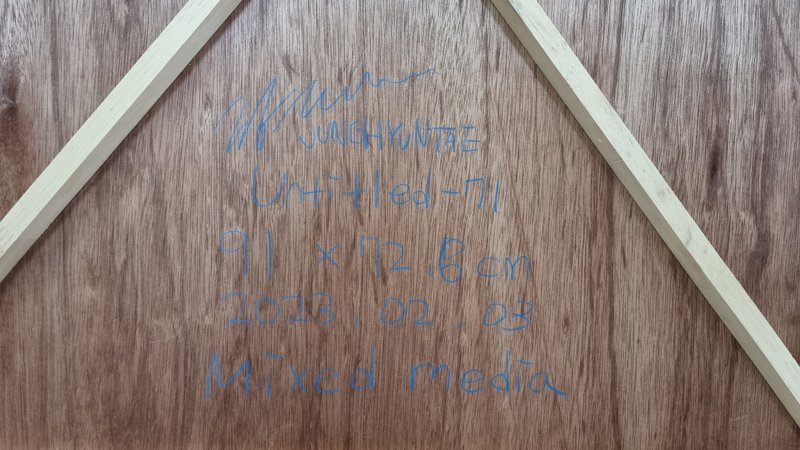 JUNGHYUNTAE
Untitled-71
91 x 72.6cm
2023.02.03
Mixed media